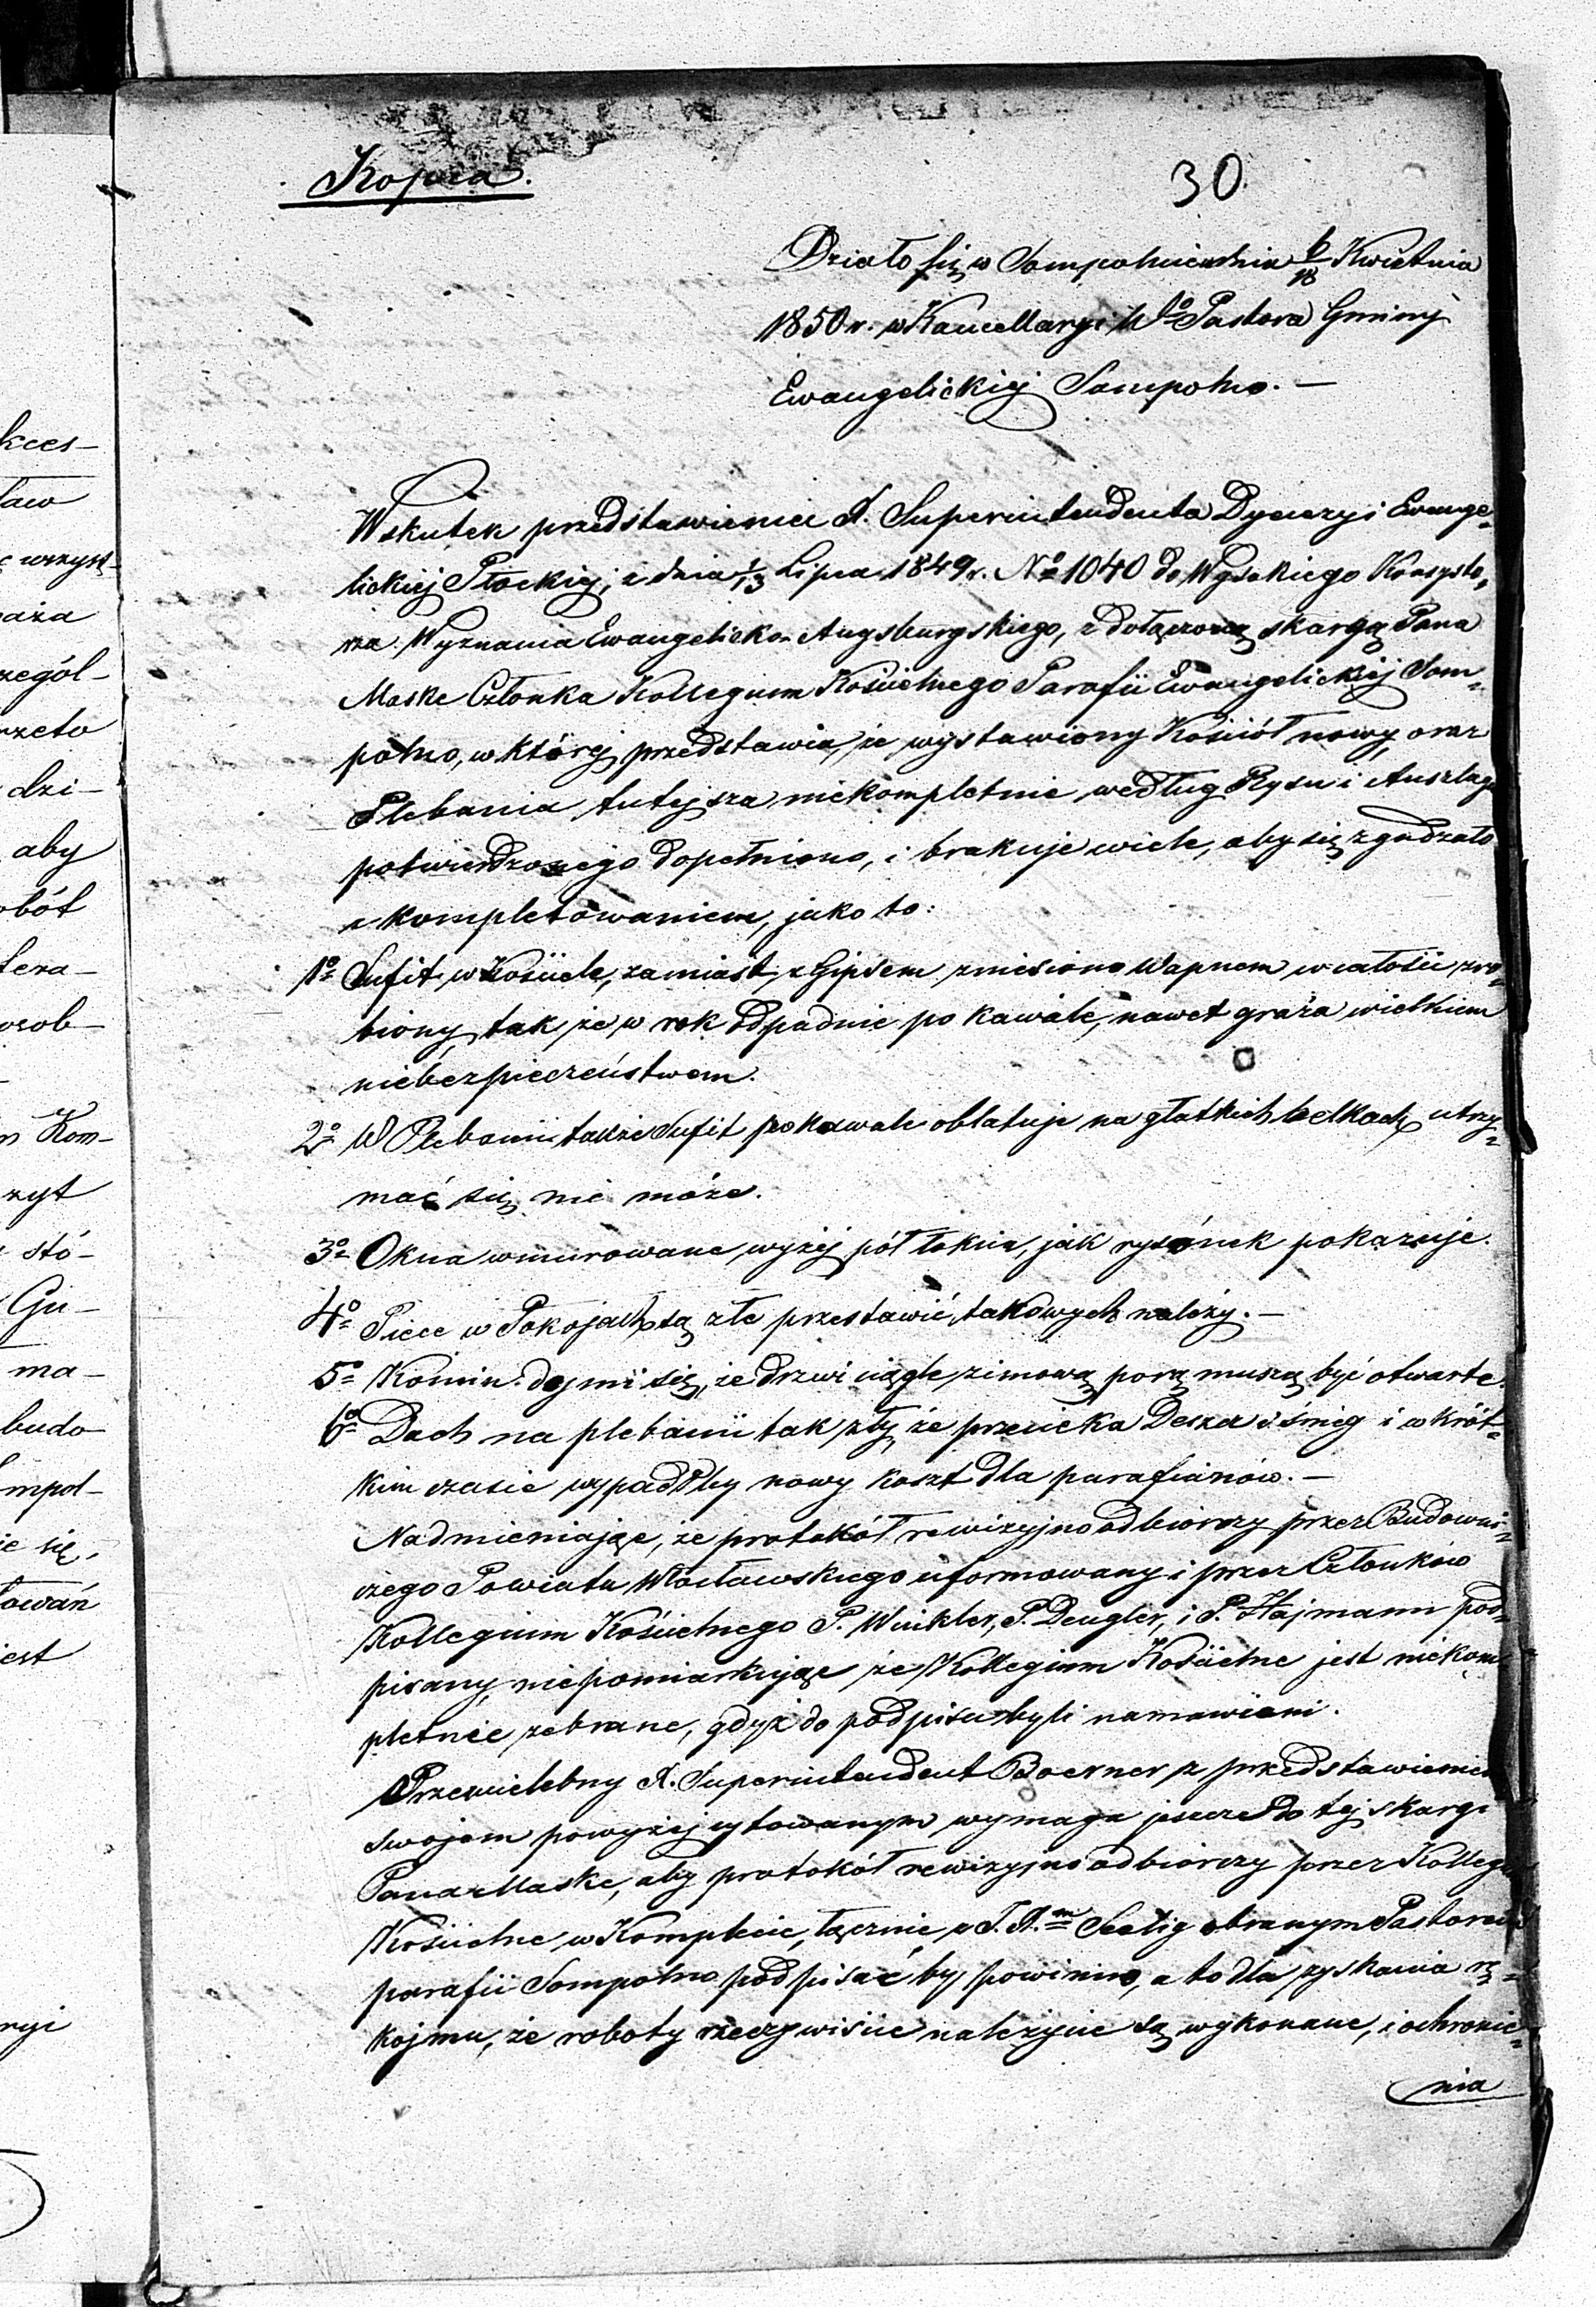 Kopia.
30.
Działo się w Sompolnie dnia 6/18 Kwietnia
1850 r. w Kancellaryi Wo Pastora Gminy
Ewangelickiej Sompolno. —
Wskutek przedstawienia X. Superintendenta Dyecezyi Ewange-
lickiej Płockiej, z dnia 1/13 Lipca 1849 r. No 1040 do Wysokiego Konsysto-
rza Wyznania Ewangelicko-Augsburgskiego, z dołączoną skargą Pana
Maske Członka Kollegium Kościelnego Parafii Ewangelickiej Som-
polno, w której przedstawia, że wystawiony Kościół nowy, oraz
Plebania tutejsza niekompletnie według Rysu i Anszlagu
potwierdzonego dopełniono, i brakuje wiele, aby się zgadzało
z kompletowaniem, jako to:
1o Sufit w Kościele, zamiast z Gipsem zmiesiono Wapnem w całości zro-
biony, tak że w rok odpadnie po kawale, nawet graża wielkiem
niebezpieczeństwem.
2o W Plebanii także Sufit po kawale oblatuje na głatkich belkach utrzy-
mać się nie może.
3o Okna wmurowane wyżej pół łokcia, jak rysónek pokazuje.
4o Piece w Pokojach są złe przestawić takowych należy. —
5o Komin dejmi się, że drzwi ciągle zimową porą muszą być otwarte.
6o Dach na plebanii tak zły, że przecieka Deszcz i śnieg i w krót-
kim czasie wypadłby nowy koszt dla parafianów. —
Nadmieniając, że protokół rewizyjno odbiorczy przez Budowni-
czego Powiatu Włocławskiego uformowany i przez Członków
Kollegium Kościelnego P. Winkler, P. Dengler, i P. Hajmann pod-
pisany, niepomiarkując że Kollegium Kościelne jest niekom-
pletnie zebrane, gdyż do podpisu byli namawieni.
Przewielebny X. Superintendent Boerner z przedstawieniem
swojem powyżej cytowanym wymaga jeszcze do tej skargi
Pana Maske, aby protokół rewizyjno odbiorczy przez Kollegium
Kościelne w Komplecie, łącznie z J. X.m Seelig obranym Pastorem
parafii Sompolno podpisać by powinno, a to dla zyskania rę-
kojmu, że roboty rzeczywiście należycie są wykonane, i ochronie-
nia
kces-
ław
ć wszyst-
aża
zegól-
rzeto
dzi-
aby
obót
tera-
osob-
n Kom-
zyt
stó-
Gu-
ma-
budo
mpol-
ie się,
towań
est
ryi